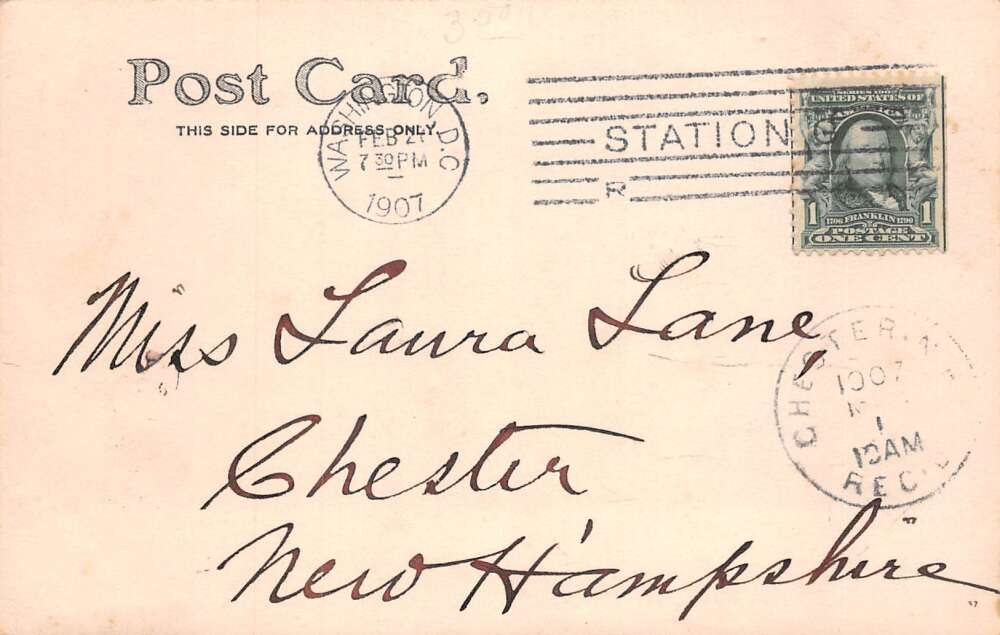 3.50
Post Card.
THIS SIDE FOR ADDRESS ONLY.
WASHINGTON, D.C
FEB
7 30 PM
1907
STATION
R
SERIES 1902
UNITED STATES OF
AMERICA
1 1706 FRANKLIN 1790 1
POSTAGE
ONE CENT
Miss Laura Lane,
Chester
New Hampshire
CHESTER,
1907
1
10AM
REC'D